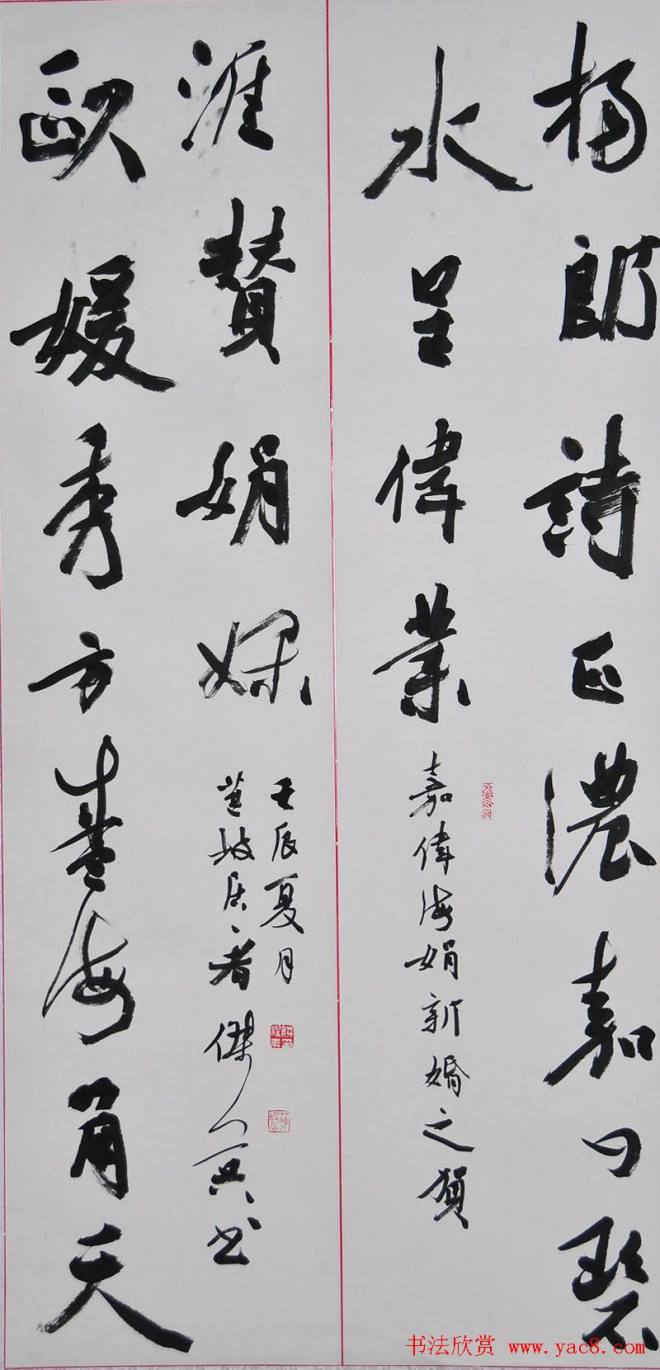 楊郎詩正濃嘉句碧
水呈偉業
嘉偉海娟新婚之賀
歐媛秀方海角天
涯贊娟
壬辰夏月
坡居者傑人书
书法欣赏 www.yac8.com